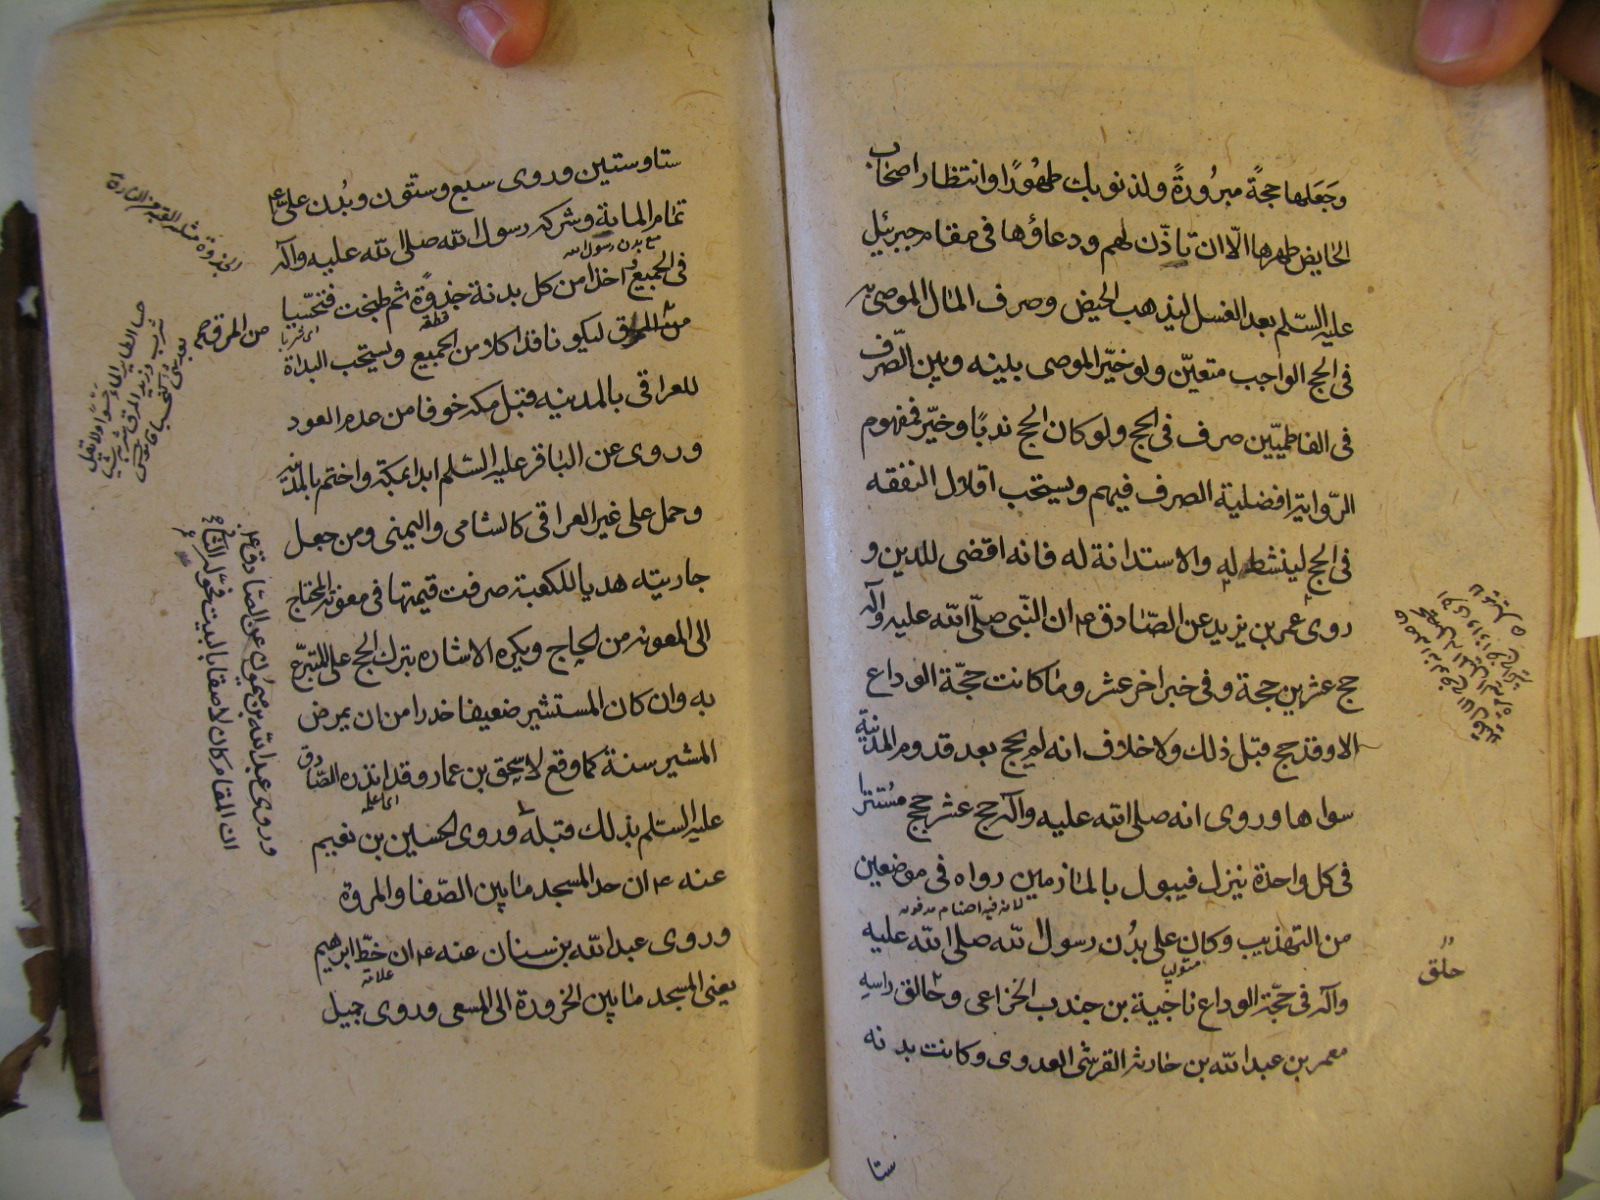 وجَعَلها حجةً مبرُورةً ولذنوبك طهُورًا وانتظار اصحاب
الحايض طهرها الّا ان تاذّن لهم ودعاؤها فى مقام جبرئيل
عليه السّلم بعد الغسل ليذهب الحيض وصرف المال الموصى به
فى الحج الواجب متعيّن ولو خيّر الموصى بينه وبين الصّرف
فى الفاطميّين صرف فى الحج ولو كان الحج ندبًا وخيّر فمفهوم
الرّواية افضلية الصرف فيهم ويستحب اقلال النفقه
فى الحج لينشط له والاستدانة له فانه اقضى للدين و
روى عمر بن يزيد عن الصّادق ع ان النّبى صلّى الله عليه وآله
حج عشرين حجة وفى خبر اخر عشر وما كانت حجّة الوداع
الا وقد حج قبل ذلك ولا خلاف انه لم يحج بعد قدوم المدينة
سواها وروى انه صلى الله عليه وآله حج عشر حجج مستترا
فى كل واحدة ينزل فيبول بالمازمين رواه فى موضعين
لانه فيه اصنام مدفونه
من التهذيب وكان على بدُن رسول الله صلى الله عليه
متولى
وآله فى حجّة الوداع ناجية بن جندب الخزاعى وحالق راسه
حلق
معمر بن عبد الله بن حارث القرشى العدوى وكانت بدنه
ستا
ستا وستين وروى سبع وستّون وبُدن على ع
تمام الماية وشركه رسول الله صلى الله عليه وآله
بدن رسول الله
فى الجميع اخذ من كل بدنة جذوةً ثم طبخت فتحسّيا
قطعه
من المرق ليكونا قد اكلا من الجميع ويستحب البداة
من المرق
للعراقى بالمدينه قبل مكه خوفا من عدم العود
وروى عن الباقر عليه السّلم ابدا بمكة واختم بالمدينة
وحمل على غير العراقى كالشامى واليمنى ومن جعل
جاريته هديا للكعبة صرفت قيمتها فى معونة المحتاج
الى المعونه من الحاج ويكره الاشاره بترك الحج على المتبرّع
به وان كان المستشير ضعيفا حذرا من ان يمرض
المشير سنة كما وقع لاسحق بن عمار وقد انذره الصّادق
عليه السّلم بذلك قبله وروى الحسين بن نعيم
عنه ع ان حد المسجد ما بين الصّفا والمروة
وروى عبد الله بن سنان عنه ع ان خطّ ابرهيم
علامه
يعنى المسجد ما بين الحزورة الى المسعى وروى جميل
وروى عبد الله بن ميمون عن الصّادق ع
ان المقام كان لاصقا بالبيت فحوّله الثانى